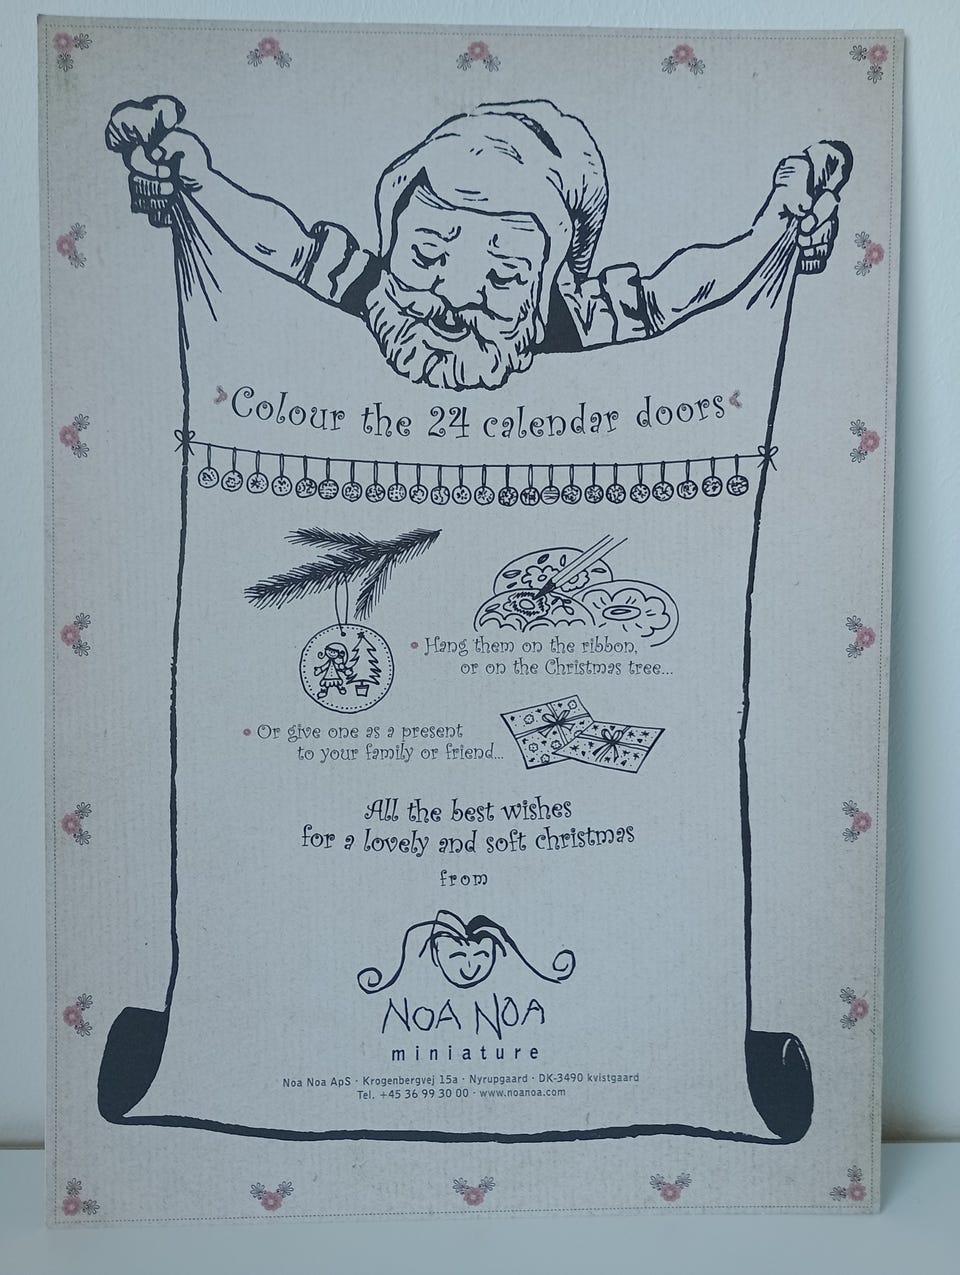 Colour the 24 calendar doors
• Hang them on the ribbon,
or on the Christmas tree...
• Or give one as a present
to your family or friend...
All the best wishes
for a lovely and soft christmas
from
NOA NOA
miniature
Noa Noa ApS · Krogenbergvej 15a · Nyrupgaard · DK-3490 kvistgaard
Tel. +45 36 99 30 00 · www.noanoa.com